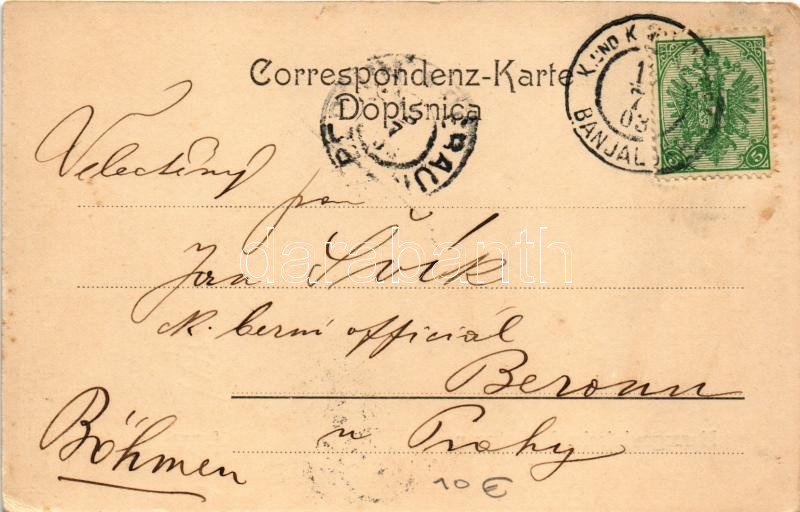 Correspondenz-Karte
Dopisnica
K. UND K.
1
7
03
BANJAL
5 5
BERAUN
Velectěný pan
Jan Švík
ck. berní officiál
Beroun
u Prahy
Böhmen
10 €
darabanth